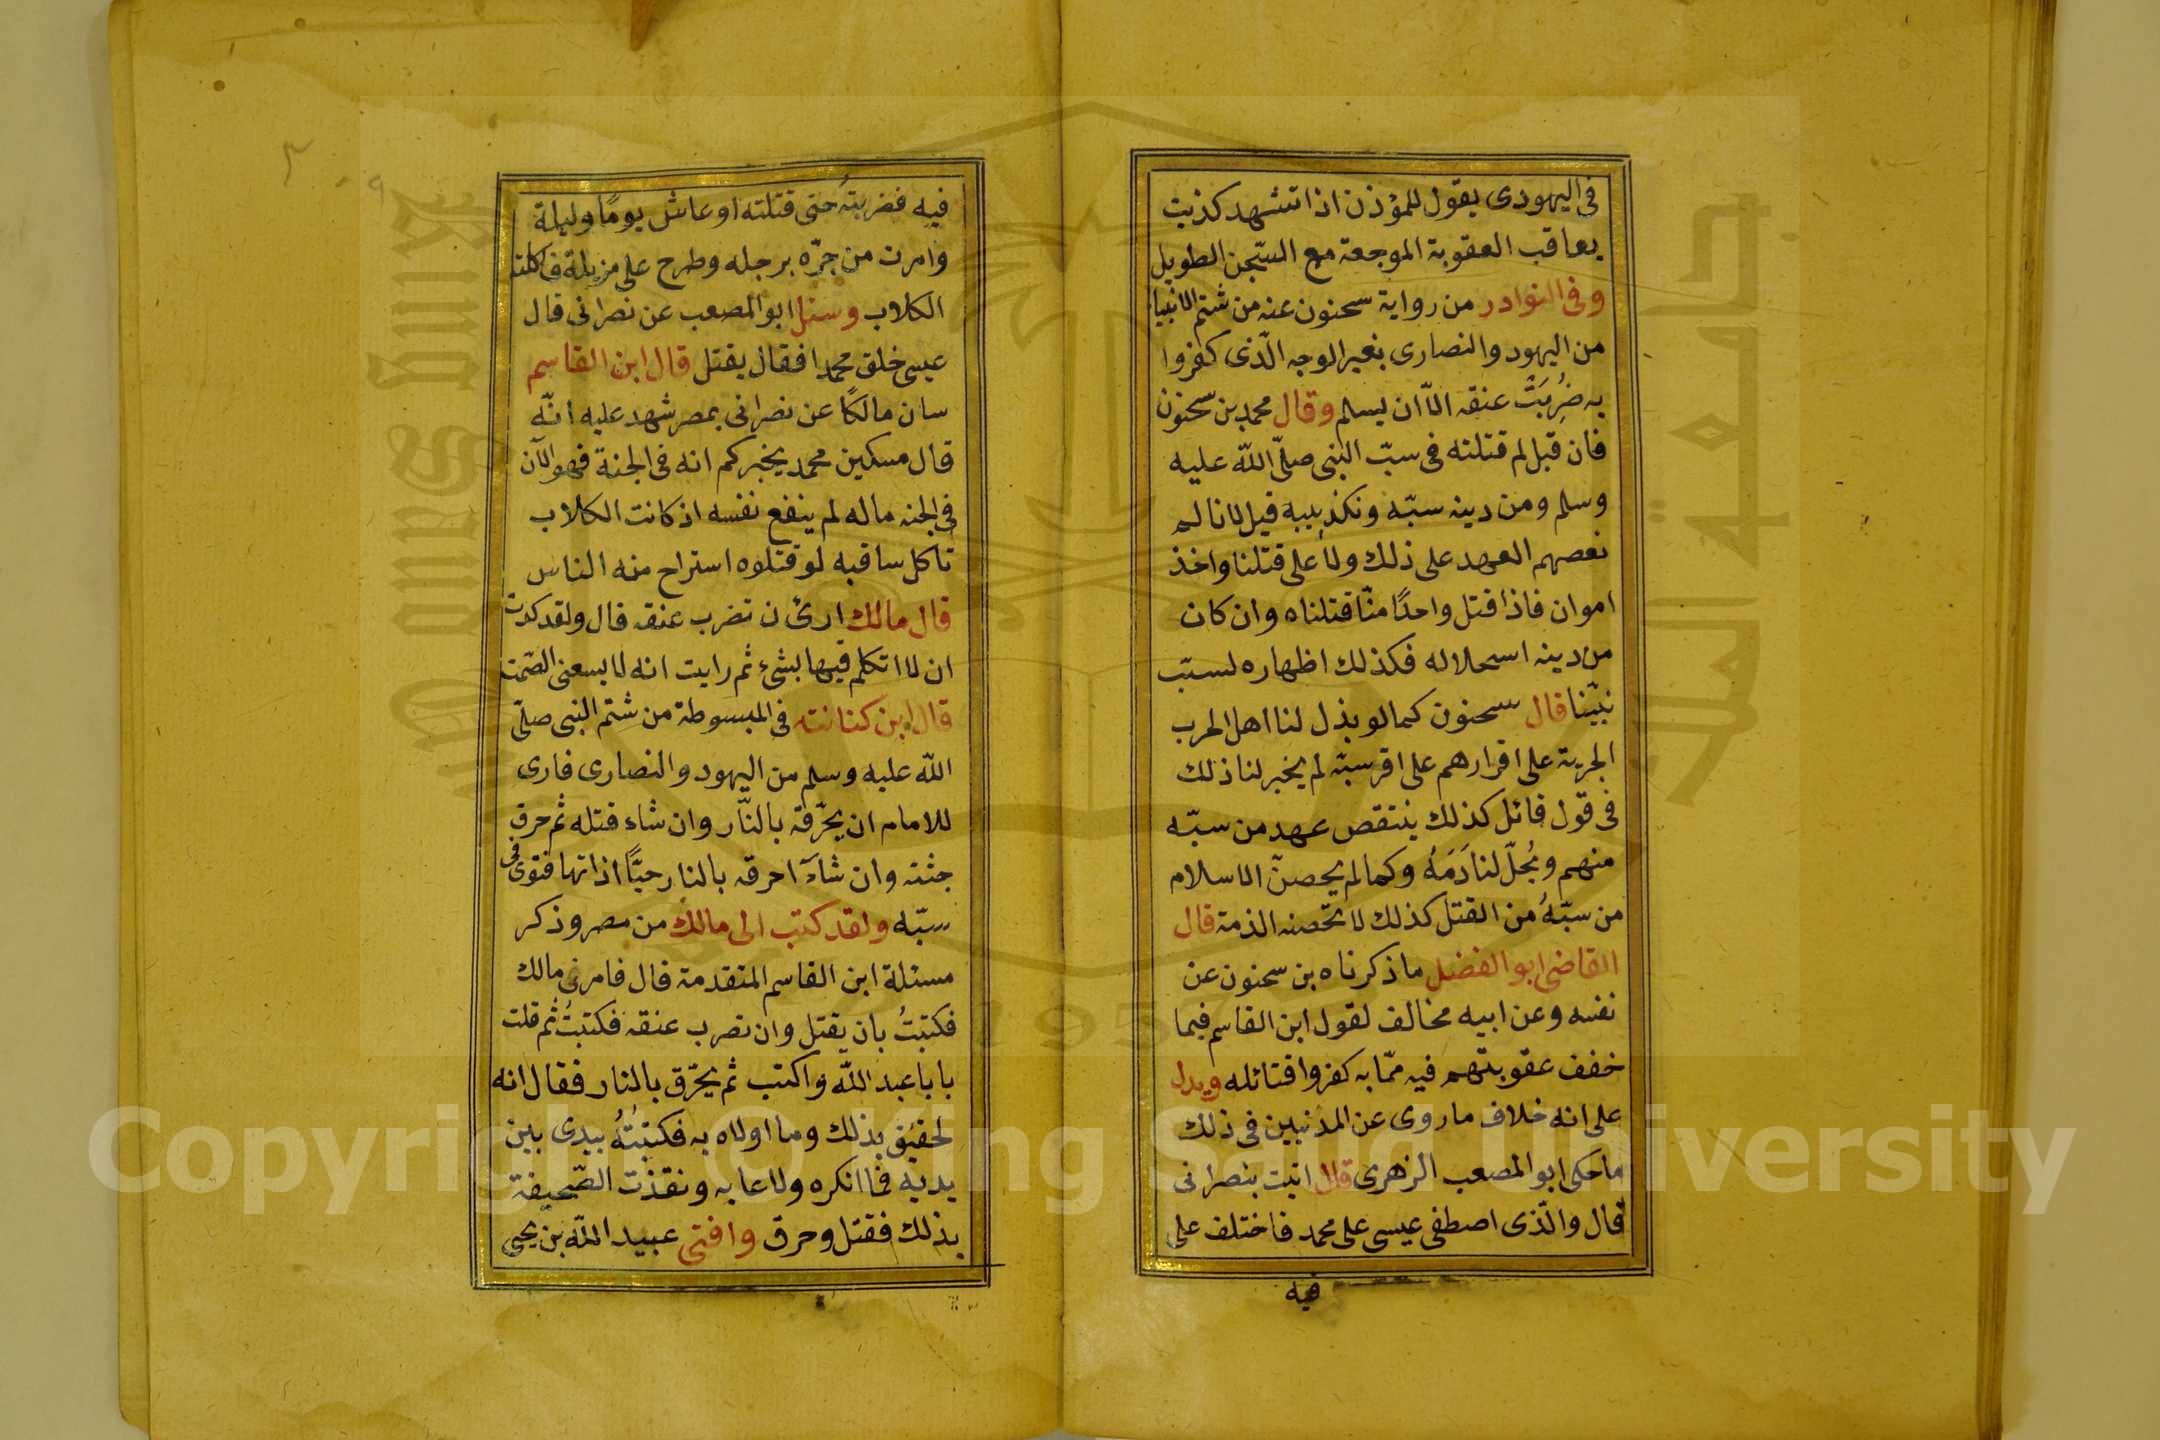 في اليهودى يقول للمؤذن اذا تشهد كذبت
يعاقب العقوبة الموجعة مع السّجن الطويل
وفى النوادر من رواية سحنون عنه من شتم الانبياء
من اليهود والنصارى بغير الوجه الّذى كفروا
به ضُرِبَتْ عنقه الّا ان يسلم وقال محمد بن سحنون
فان قيل لم قتلته فى سبّ النبى صلّى اللّه عليه
وسلم ومن دينه سبّه وتكذيبه قيل لانا لم
نعصهم العهد على ذلك ولا على قتلنا واخذ
اموان فاذا قتل واحدًا منّا قتلناه وان كان
من دينه استحلاله فكذلك اظهاره لسبّ
نبيّنا قال سحنون كما لو بذل لنا اهل الحرب
الجزية على اقرارهم على اقر سبّه لم يخبر لنا ذلك
فى قول قائل كذلك ينتقص عهد من سبّه
منهم ويُحلّ لنا دَمَهُ وكما لم يحصنّ الاسلام
من سبّهُ من القتل كذلك لا تحّصنه الذمة قال
القاضى ابو الفضل ما ذكرناه بن سحنون عن
نفسه وعن ابيه مخالف لقول ابن القاسم فيما
خفف عقوبتهم فيه ممّا به كفروا فتائله ويدل
على انه خلاف ما روى عن المدنيين فى ذلك
ما حكى ابو المصعب الزهرى قال اتيت بنصرانى
قال والّذى اصطفى عيسى على محمد فاختلف على
فيه
فيه فضربتهُ حتى قتلته او عاش يومًا وليلة
وامرت من جرّه برجله وطرح على مزبلة فاكلته
الكلاب وسئل ابو المصعب عن نصرانى قال
عيسى خلق محمدا فقال يقتل قال ابن القاسم
سان مالكًا عن نصرانى بمصر شهد عليه انّه
قال مسكين محمد يخبركم انه فى الجنة فهو الآن
فى الجنه ماله لم ينفع نفسه اذ كانت الكلاب
تاكل ساقيه لو قتلوه استراح منه الناس
قال مالك ارى ن تضرب عنقه قال ولقد كدت
ان لا اتكلم فيها بشئ ثم رايت انه لا يسعنى الصّمت
قال ابن كنانته فى المبسوطة من شتم النبى صلّى
اللّه عليه وسلم من اليهود والنصارى فارى
للامام ان يحّرقه بالنّار وان شاء قتله ثم حرق
جثته وان شآء احرقه بالنار حيًّا اذا تهافتوى فى
سبّه ولقد كتب الى مالك من مصر وذكر
مسئلة ابن القاسم المتقدمة قال فامرنى مالك
فكتبتُ بان يقتل وان تضرب عنقه فكتبتُ ثم قلت
يا با عبد اللّه واكتب ثم يحّرق بالنار فقال انه
لحقيق بذلك وما اولاه به فكتبتُهُ بيدى بين
يديه فما انكره ولا عابه ونفذت الصّحيفة
بذلك فقتل وحرق وافتى عبيد اللّه بن يحيى
Copyright © King Saud University
جامعة الملك سعود
King Saud University
1957